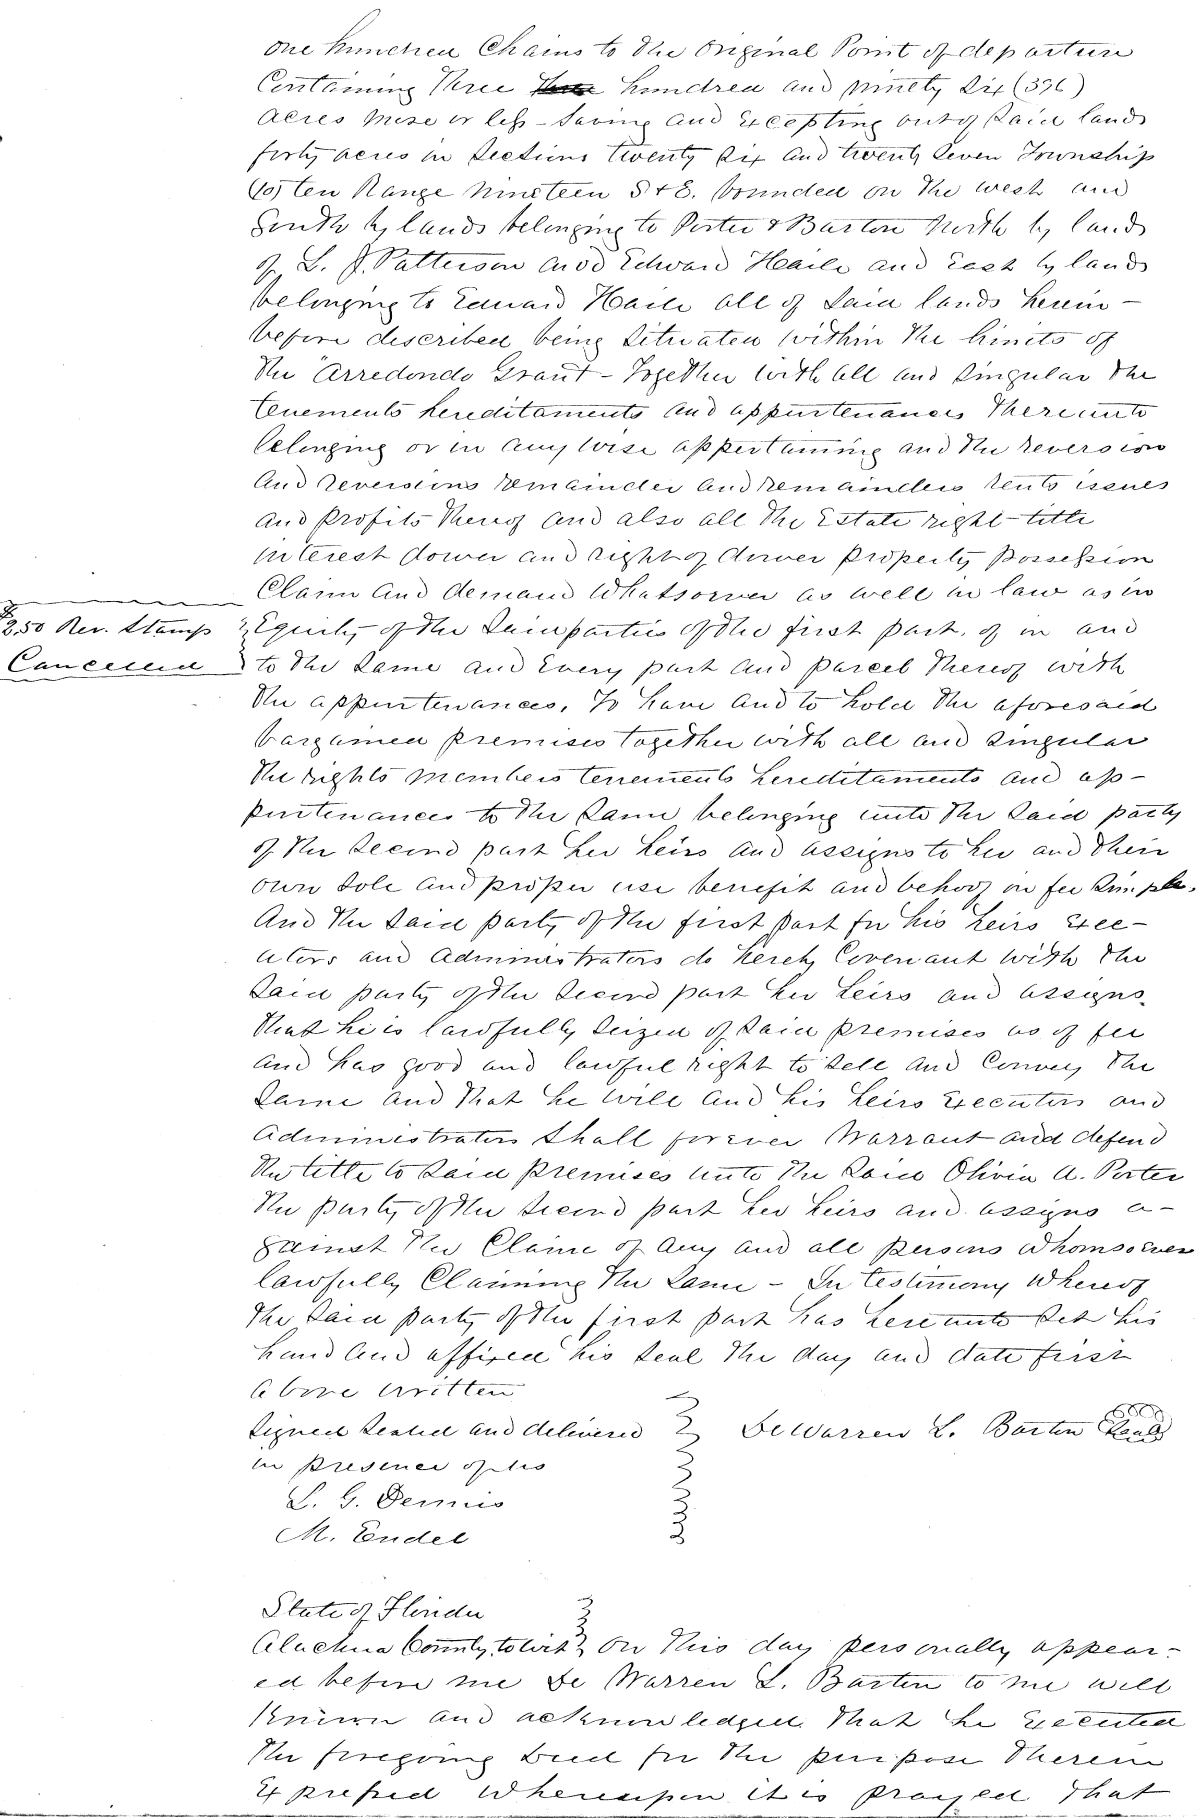 one hundred Chains to the Original Point of departure
Containing Three hundred and ninety Six (396)
Acres more or less - Saving and Excepting out of Said lands
forty acres in Sections twenty Six and twenty Seven Township
(10) ten Range Nineteen S & E. bounded on the west and
South by lands belonging to Porter & Barton North by lands
of L. J. Patterson and Edward Haile and East by lands
belonging to Edward Haile all of Said lands herein-
before described being Situated within the limits of
the Arredondo Grant - Together with all and Singular the
tenements hereditaments and appurtenances thereunto
belonging or in any wise appertaining and the reversion
and reversions remainder and remainders rents issues
and profits thereof and also all the Estate right-title
interest dower and right of dower property possession
Claim and demand Whatsoever as well in law as in
$2.50 Rev. Stamp Equity of the Said parties of the first part. of in and
Cancelled to the Same and Every part and parcel thereof with
the appurtenances. To have and to hold the aforesaid
bargained premises together with all and Singular
the rights members tenements hereditaments and ap-
purtenances to the Same belonging unto the Said party
of the Second part her heirs and assigns to her and their
own Sole and proper use benefit and behoof in fee Simple.
And the Said party of the first part for his heirs Exec-
utors and Administrators do hereby Covenant with the
Said party of the Second part her heirs and assigns
that he is lawfully Seized of Said premises as of fee
and has good and lawful right to Sell and Convey the
Same and that he will and his heirs Executors and
Administrators Shall forever Warrant and defend
the title to Said premises unto the Said Olivia A. Porter
the party of the Second part her heirs and assigns a-
gainst the Claims of any and all persons whomsoever
lawfully Claiming the Same - In testimony Whereof
the Said party of the first part has hereunto Set his
hand and affixed his Seal the day and date first
above written
Signed Sealed and delivered De Warren L. Barton Seal
in presence of us
L. G. Dennis
M. Endel
State of Florida
Alachua County, to wit, On this day personally appear-
ed before me De Warren L. Barton to me well
Known and acknowledged that he Executed
the foregoing Deed for the purpose therein
Expressed Whereupon it is prayed that